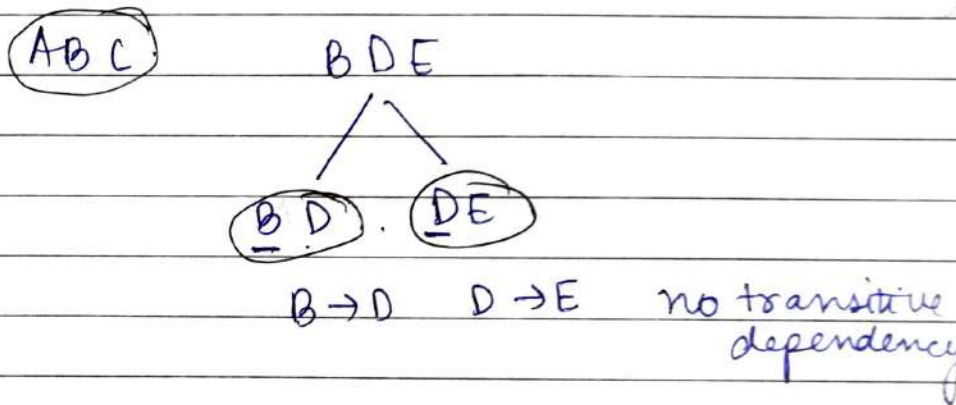 ABC BDE
BD . DE
B → D D → E no transitive
dependency